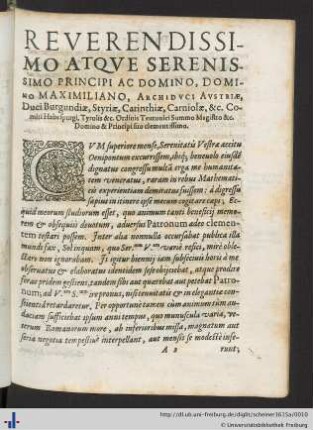 REVERENDISSI-
MO ATQVE SERENIS-
SIMO PRINCIPI AC DOMINO, DOMI-
NO MAXIMILIANO, ARCHIDUCI AVSTRIÆ,
Duci Burgundiæ, Styriæ, Carinthiæ, Carniolæ, &c. Co-
miti Habspurgi, Tyrolis &c. Ordinis Teutonici Summo Magistro &c.
Domino & Principi suo clementissimo.
CVM superiore mense, Serenitatis Vestræ accitu
Oenipontum excurrissem, ibíq; benevolo eiusdē
dignatus congressu multā erga me humanita-
tem veneratus, raram in rebus Mathemati-
cis experientiam demiratus fuissem: à digressu
sæpius in itinere ipse mecum cogitare cœpi; Ec-
quid meorum studiorum esset, quo animum tanti beneficij memo-
rem & obsequij devotum, adversus Patronum adeo clemen-
tem testari possem. Inter alia nonnulla occursabat publica illa
mundi fax, Sol inquam, quo Ser. V. variè refici, mirè oble-
ctare non ignorabam. Is igitur biennij iam subsecivis horis à me
observatus & elaboratus identidem sese objiciebat, atque prodire
foras pridem gestiens, tandem sibi aut quærebat aut petebat Patro-
num; ad V. S. irreptans, nisi tenuitatis & inelegantiæ con-
scientia retardaretur. Peropportunè tamen eum animum tum au-
daciam suffiebat ipsum anni tempus, quo munuscula varia, ve-
terum Romanorum more, ab inferioribus missa, magnatum aut
seria negotia tempestivè interpellant, aut mensis se modestè inse-
A 2 runt;
http://dl.ub.uni-freiburg.de/diglit/scheiner1615a/0010
© Universitätsbibliothek Freiburg